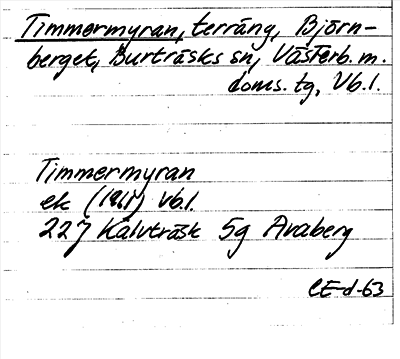 Timmermyran, terräng, Björn-
berget, Burträsks sn, Västerb. m.
doms. tg, Vb. l.
Timmermyran
ek (1961) Vb. l.
227 Kalvträsk 5g Avaberg
CE-d-63